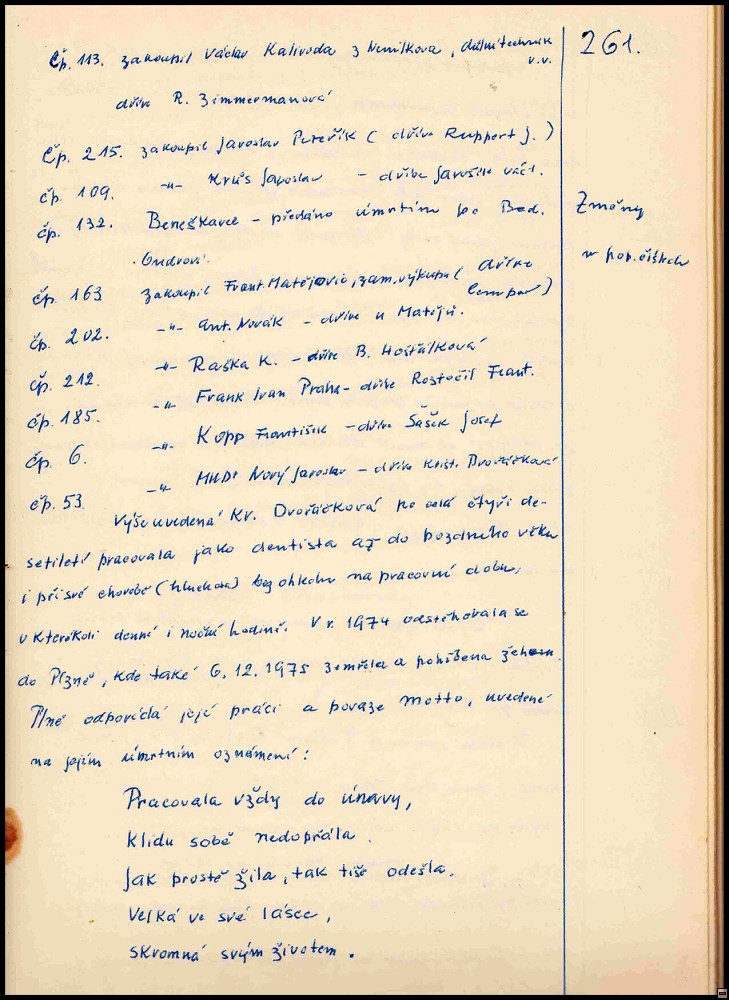 261.
Změny
v pop. číslech
Čp. 113. zakoupil Václav Kalivoda z Nemilkova, důlní technik
v.v.
dříve R. Zimmermanová
Čp. 215. zakoupil Jaroslav Peteřík ( dříve Ruppert J. )
čp. 109. -"- Krůs Jaroslav - dříve Jarušek Václ.
čp. 132. Beneškavec - předáno úmrtím po Bed.
Ondrovi.
čp. 163 zakoupil Frant. Matějovic, zam. výkupu ( dříve
Cempar )
čp. 202. -"- Ant. Novák - dříve u Matějů.
čp. 212. -"- Raška K. - dříve B. Hošťálková
čp. 185. -"- Frank Ivan Praha - dříve Roztočil Frant.
čp. 6. -"- Kopp František - dříve Šašek Josef
čp. 53. -"- MUDr Nový Jaroslav - dříve Krist. Dvořáčková
Výše uvedená Kr. Dvořáčková po celá čtyři de-
setiletí pracovala jako dentista až do pozdního věku
i při své chorobě (hluchota) bez ohledu na pracovní dobu,
v kterékoli denní i noční hodině. V r. 1974 odstěhovala se
do Plzně, kde také 6.12.1975 zemřela a pohřbena žehem.
Plně odpovídá její práci a povaze motto, uvedené
na jejím úmrtním oznámení :
Pracovala vždy do únavy,
klidu sobě nedopřála.
Jak prostě žila, tak tiše odešla.
Velká ve své lásce,
skromná svým životem.